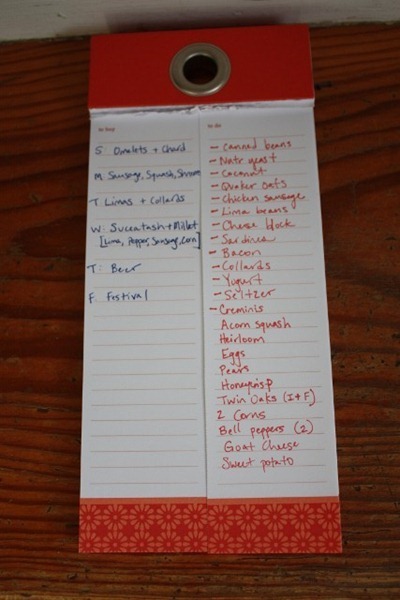 to buy
S Omelets + Chard
M. Sausage, Squash, Shroom
T. Limas + Collards
W: Sucatash + Millet
[Lima, Pepper, Sausage, Corn]
T: Beer
F. Festival
to do
- canned beans
- Nutr yeast
- Coconut
- Quaker oats
- Chicken sausage
- Lima beans
- Cheese block
- Sardines
- Bacon
- Collards
- Yogurt
- Seltzer
- Creminis
Acorn squash
Heirloom
Eggs
Pears
Honeycrisp
Twin Oaks (I+F)
2 Corns
Bell peppers (2)
Goat Cheese
Sweet potato